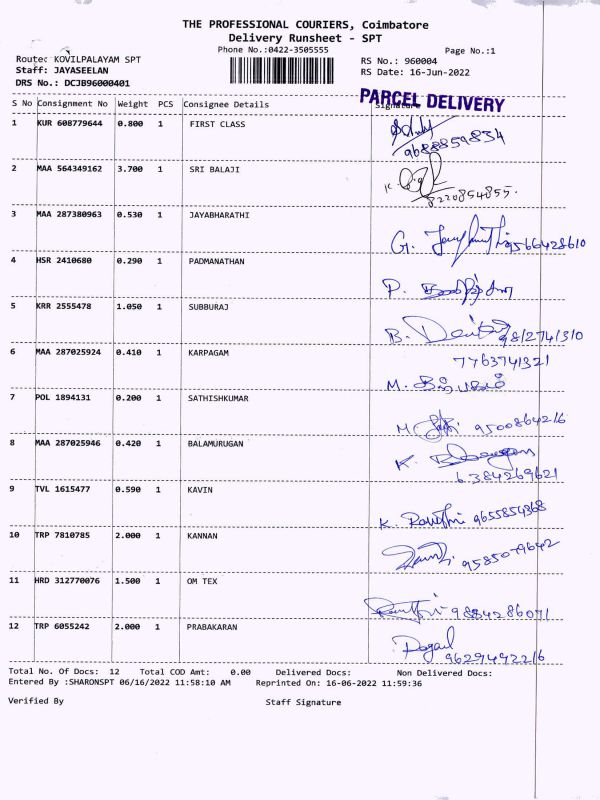 THE PROFESSIONAL COURIERS, Coimbatore
Delivery Runsheet - SPT
Phone No.:0422-3505555
Page No.:1
Route: KOVILPALAYAM SPT
RS No.: 960004
Staff: JAYASEELAN
RS Date: 16-Jun-2022
DRS No.: DCJB96000401
PARCEL DELIVERY
S No Consignment No Weight PCS Consignee Details Signature
1 KUR 608779644 0.800 1 FIRST CLASS
9688859834
2 MAA 564349162 3.700 1 SRI BALAJI
K.
8220854855.
3 MAA 287380963 0.530 1 JAYABHARATHI
G. 9566428610
4 HSR 2410680 0.290 1 PADMANATHAN
P.
5 KRR 2555478 1.050 1 SUBBURAJ
B. 9812741310
6 MAA 287025924 0.410 1 KARPAGAM
7763741321
M. கற்பகம்
7 POL 1894131 0.200 1 SATHISHKUMAR
M 9500864216
8 MAA 287025946 0.420 1 BALAMURUGAN
K.
6384269621
9 TVL 1615477 0.590 1 KAVIN
K. 9655854368
10 TRP 7810785 2.000 1 KANNAN
9585079642
11 HRD 312770076 1.500 1 OM TEX
9884286071
12 TRP 6055242 2.000 1 PRABAKARAN
9629492216
Total No. Of Docs: 12 Total COD Amt: 0.00 Delivered Docs: Non Delivered Docs:
Entered By :SHARONSPT 06/16/2022 11:58:10 AM Reprinted On: 16-06-2022 11:59:36
Verified By Staff Signature